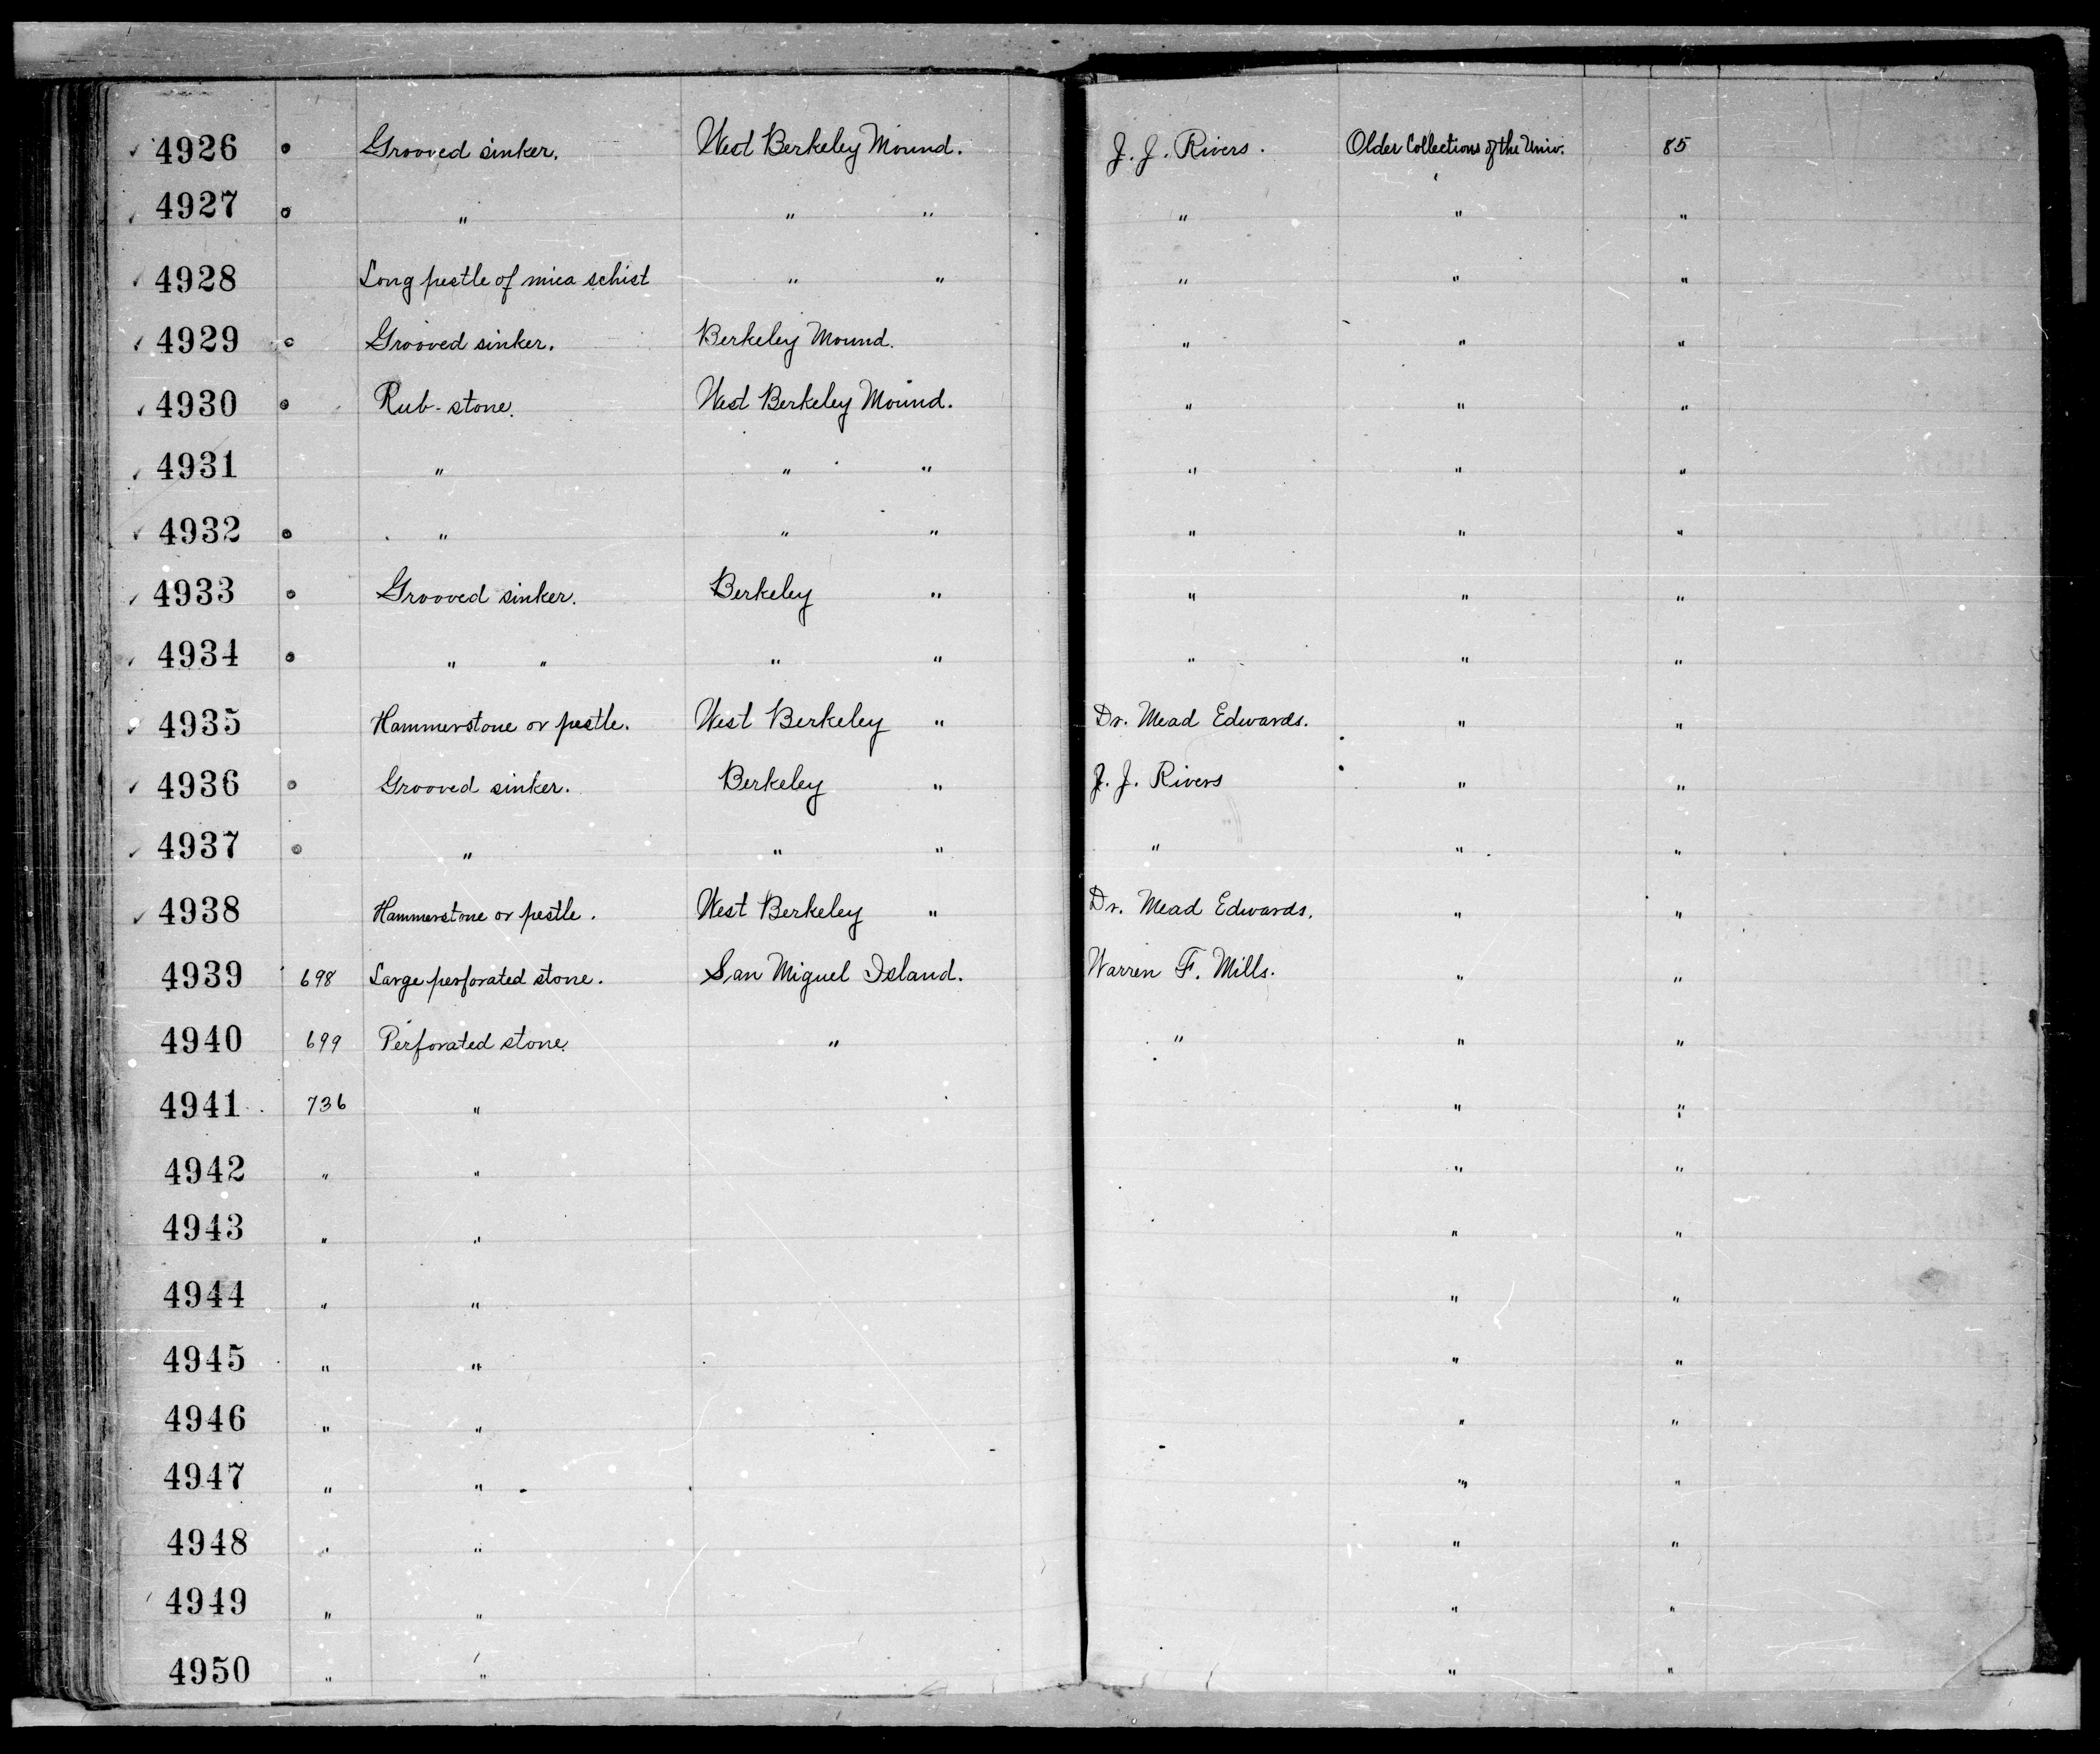 ✓ 4926 o Grooved sinker. West Berkeley Mound. J. J. Rivers. Older Collections of the Univ. 85
✓ 4927 o " " " " " "
✓ 4928 Long pestle of mica schist " " " " "
✓ 4929 o Grooved sinker. Berkeley Mound. " " "
✓ 4930 o Rub-stone. West Berkeley Mound. " " "
✓ 4931 " " " " " "
✓ 4932 o " " " " " "
✓ 4933 o Grooved sinker. Berkeley " " " "
✓ 4934 o " " " " " " "
✓ 4935 Hammerstone or pestle. West Berkeley " Dr. Mead Edwards. " "
✓ 4936 o Grooved sinker. Berkeley " J. J. Rivers " "
✓ 4937 o " " " " " "
✓ 4938 Hammerstone or pestle. West Berkeley " Dr. Mead Edwards. " "
4939 698 Large perforated stone. San Miguel Island. Warren F. Mills. " "
4940 699 Perforated stone. " " " "
4941 736 " " "
4942 " " " "
4943 " " " "
4944 " " " "
4945 " " " "
4946 " " " "
4947 " " " "
4948 " " " "
4949 " " " "
4950 " " " "